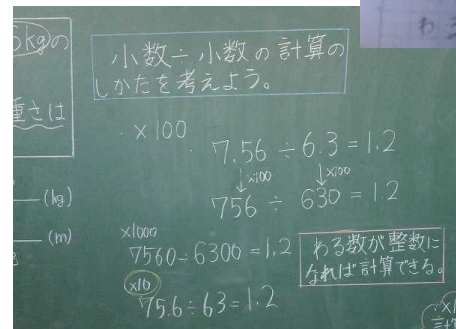 kgの
重さは
(kg)
(m)
小数÷小数の計算の
しかたを考えよう。
×100
7.56÷6.3=1.2
↓×100 ↓×100
756÷630=1.2
×1000
7560÷6300=1.2
×10
75.6÷63=1.2
わる数が整数に
なれば計算できる。
わ